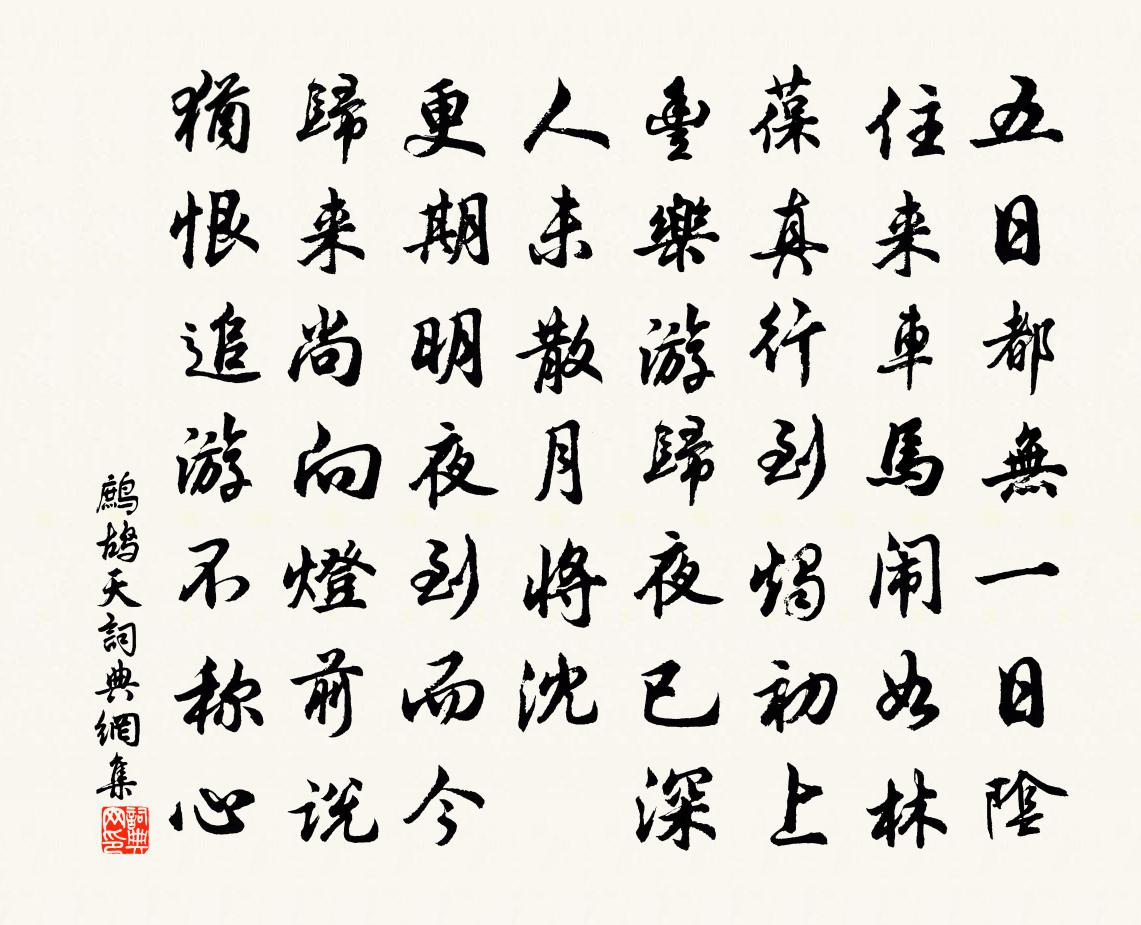 五日都無一日陰
住来車馬闹如林
葆真行到燭初上
豊樂游歸夜已深
人未散月將沈
更期明夜到而今
歸来尚向燈前说
猶恨追游不称心
鷓鴣天詞典網集
詞典网印